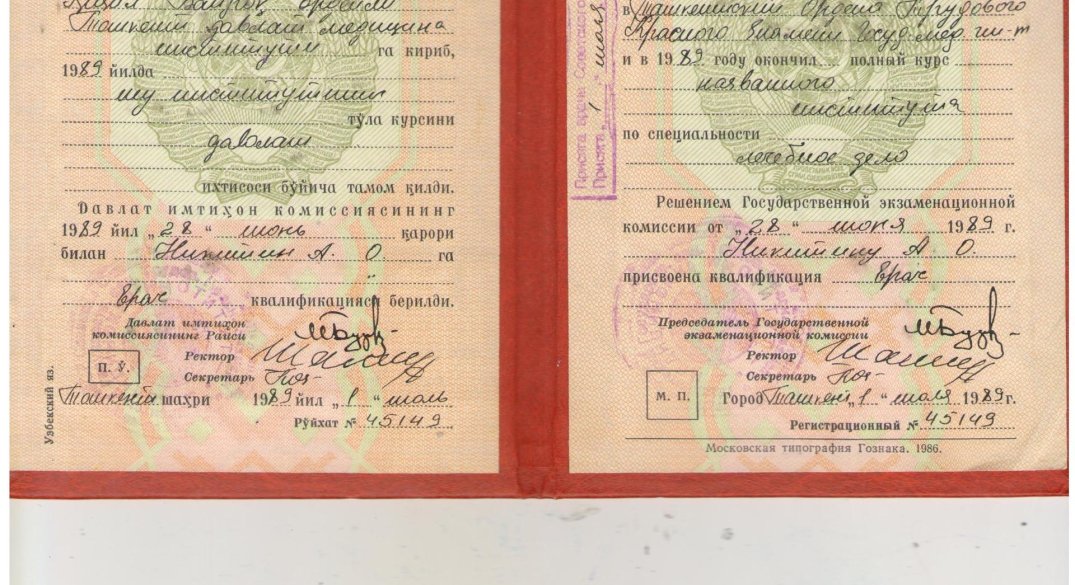 Ташкент давлат медицина
институти га кириб,
1989 йилда
шу институтнинг
тўла курсини
даволаш
ихтисоси бўйича тамом қилди.
Давлат имтиҳон комиссиясининг
1989 йил „28“ июнь қарори
билан Никитин А. О. га
Врач квалификацияси берилди.
Давлат имтиҳон
комиссиясининг Раиси
Ректор
П. Ў.
Секретарь
Ташкент шаҳри 1989 йил „1“ июль
Рўйхат № 45149
Узбекский яз.
в Ташкентский Ордена Трудового
Красного Знамени Госуд. мед. ин-т
и в 1989 году окончил полный курс
названного
института
по специальности
лечебное дело
Решением Государственной экзаменационной
комиссии от „28“ июня 1989 г.
Никитину А. О.
присвоена квалификация врач
Председатель Государственной
экзаменационной комиссии
Ректор
Секретарь
М. П.
Город Ташкент „1“ июля 1989 г.
Регистрационный № 45149
Московская типография Гознака. 1986.